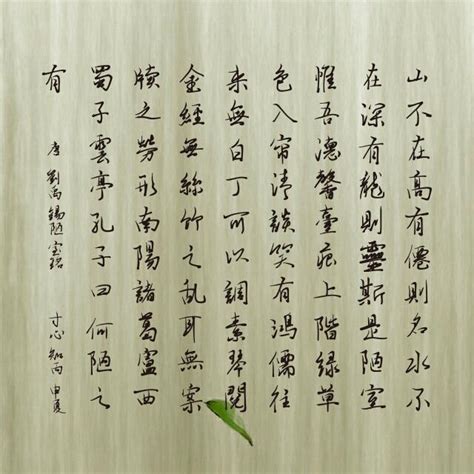 山不在高有僊則名水不
在深有龍則靈斯是陋室
惟吾德馨臺痕上階緑草
色入帘清談笑有鴻儒往
来無白丁可以調素琴閱
金經無絲竹之乱耳無案
牘之勞形南陽諸葛廬西
蜀子雲亭孔子曰何陋之
有
唐劉禹錫陋室銘 寸心知丙申夏